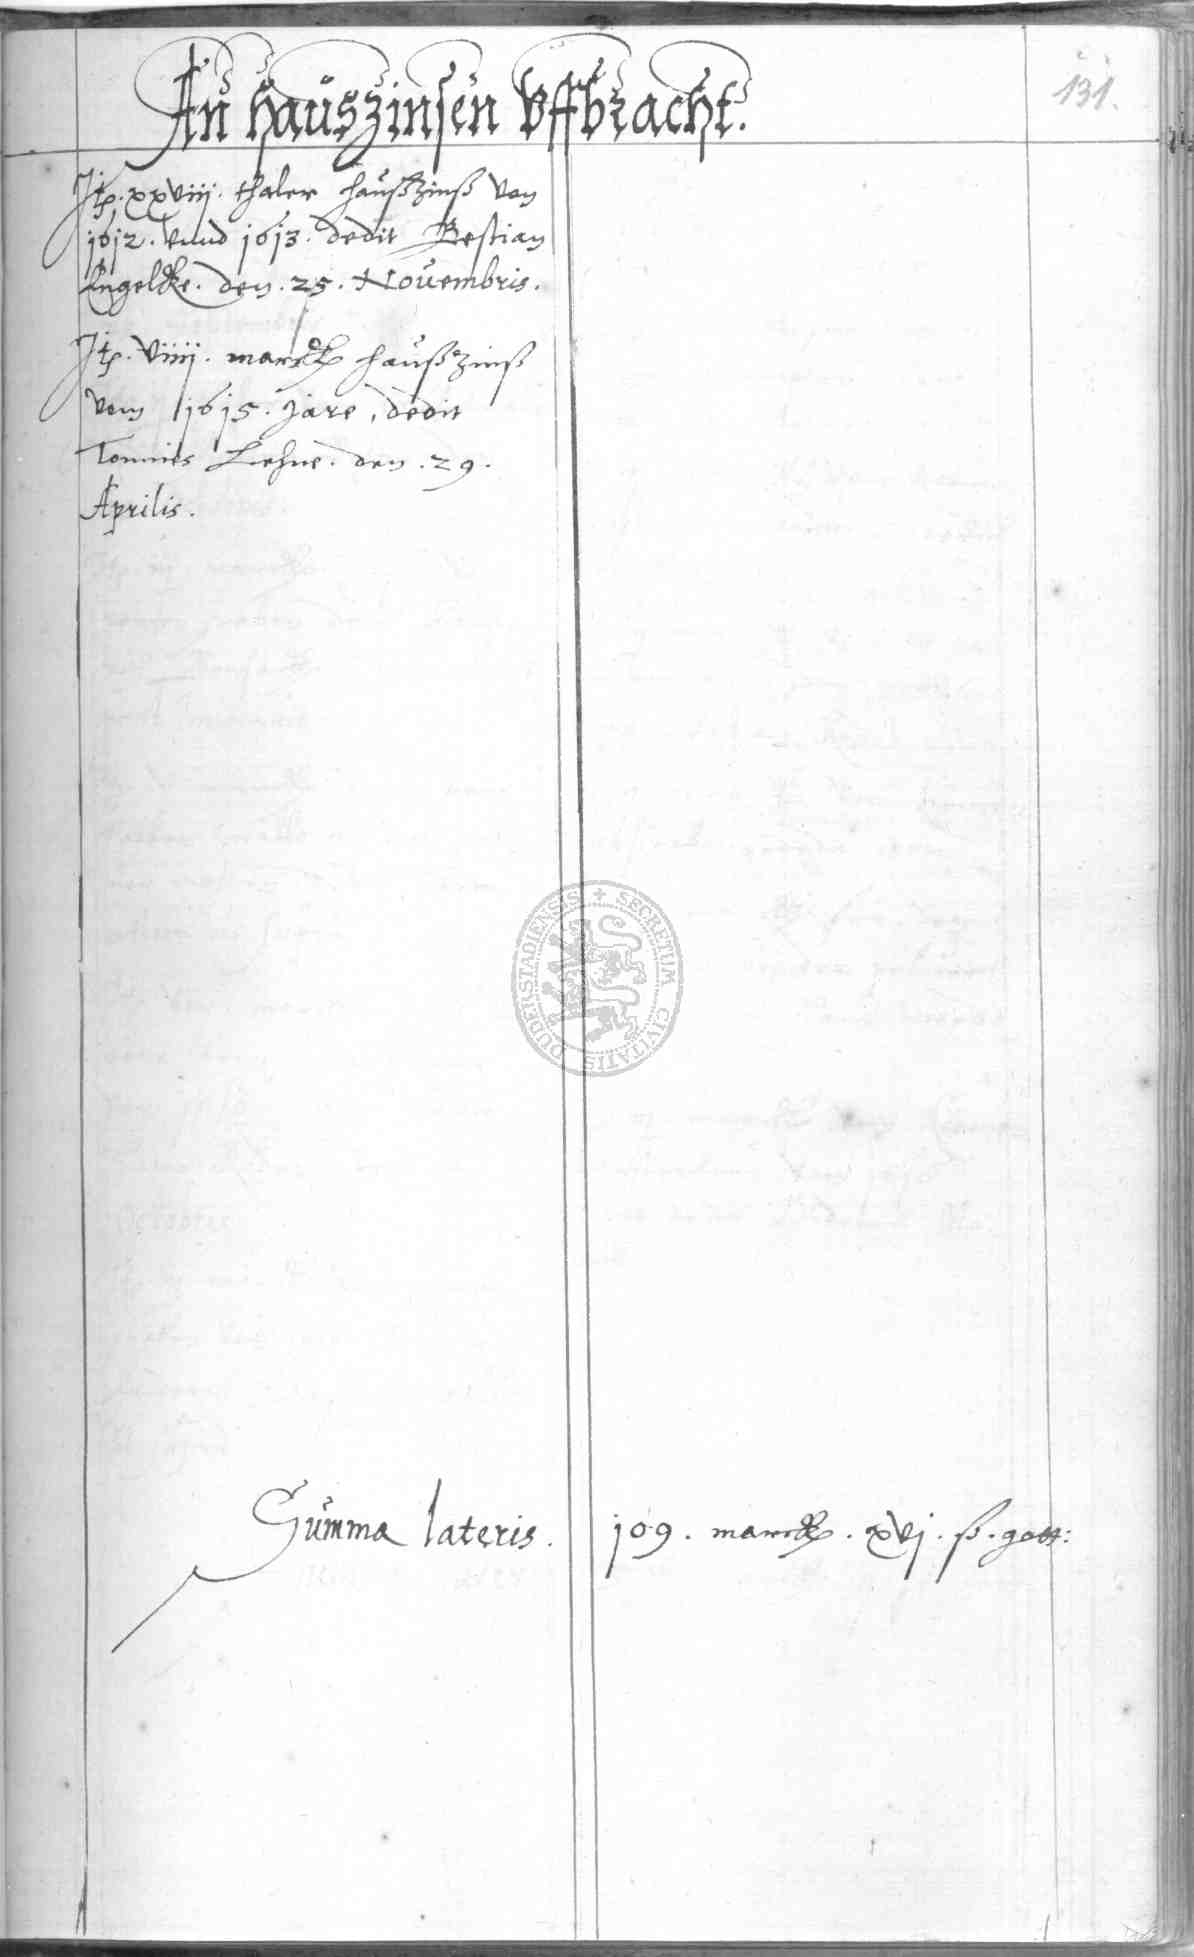 131.
An hauszinsen Vffbracht.
Jtp. xxviiij. thaler haußzinß von
1612. vnnd 1613. dedit Bestian
Engelke. den. 25. Novembris.
Jtp. viiij. marck haußzinß
vom 1615. Jare, dedit
Tonnies Lehne. den. 29.
Aprilis.
SECRETUM CIVITATIS DUDERSTADIENSIS
Summa lateris. 109. marck. xvj. ß. gott: